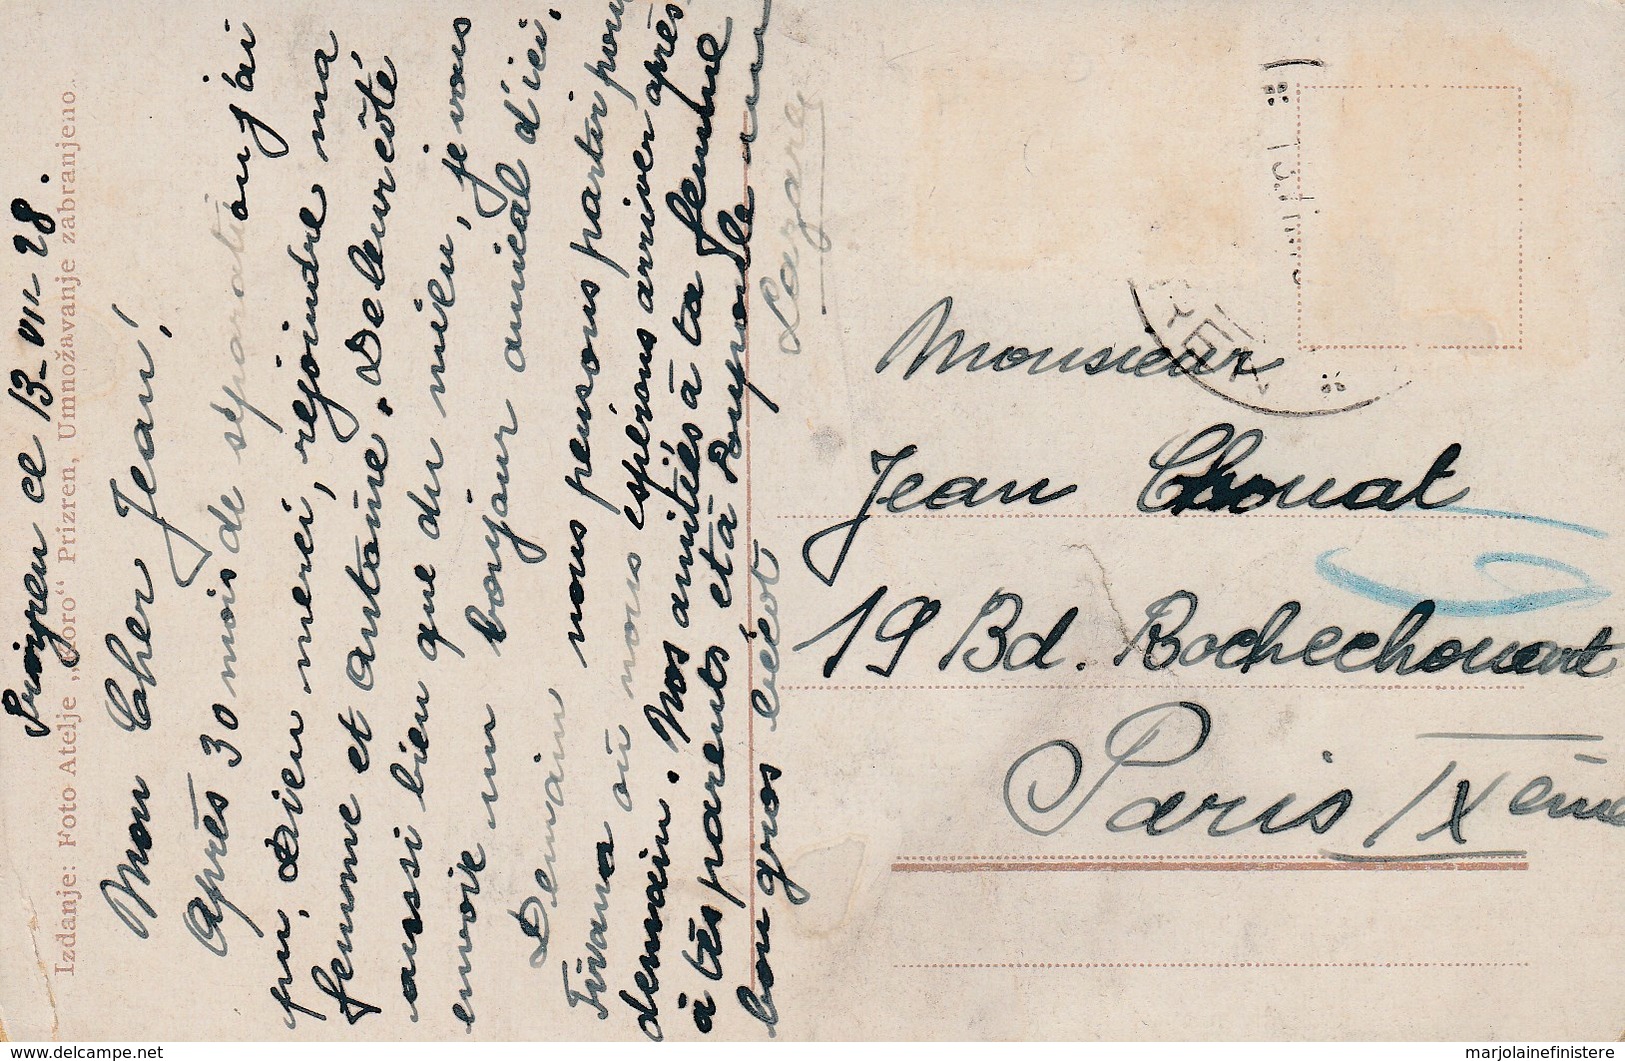 Prizren ce 13-VII-28.
Izdanje: Foto Atelje „Koro“ Prizren, Umnožavanje zabranjeno.
Mon Cher Jean!
Après 30 mois de séparation j'ai
pu, Dieu merci, rejoindre ma
femme et Antoine. De leur côté
aussi bien que du mien, je vous
envoie un bonjour amical d'ici.
Demain nous pensons partir pour
Tirana où nous espérons arriver après
demain. Nos amitiés à ta femme
à tes parents et à
bon gros
Lazare
Monsieur
Jean Chouat
19 Bd. Rochechouart
Paris IXème
www.delcampe.net
marjolainefinistere